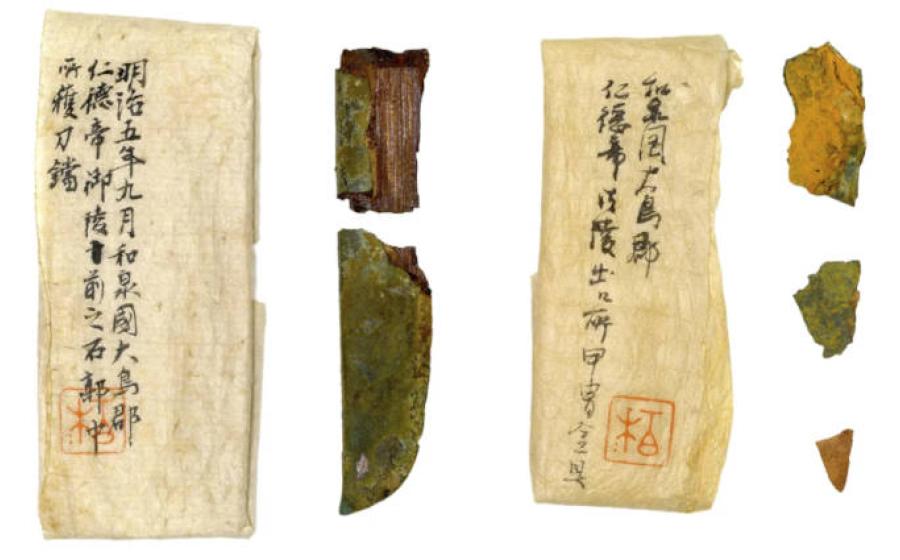 明治五年九月和泉國大鳥郡
仁德帝御陵前之石郭中
所獲刀鐺
栢
和泉国大鳥郡
仁徳帝御陵出口所甲冑金具
栢